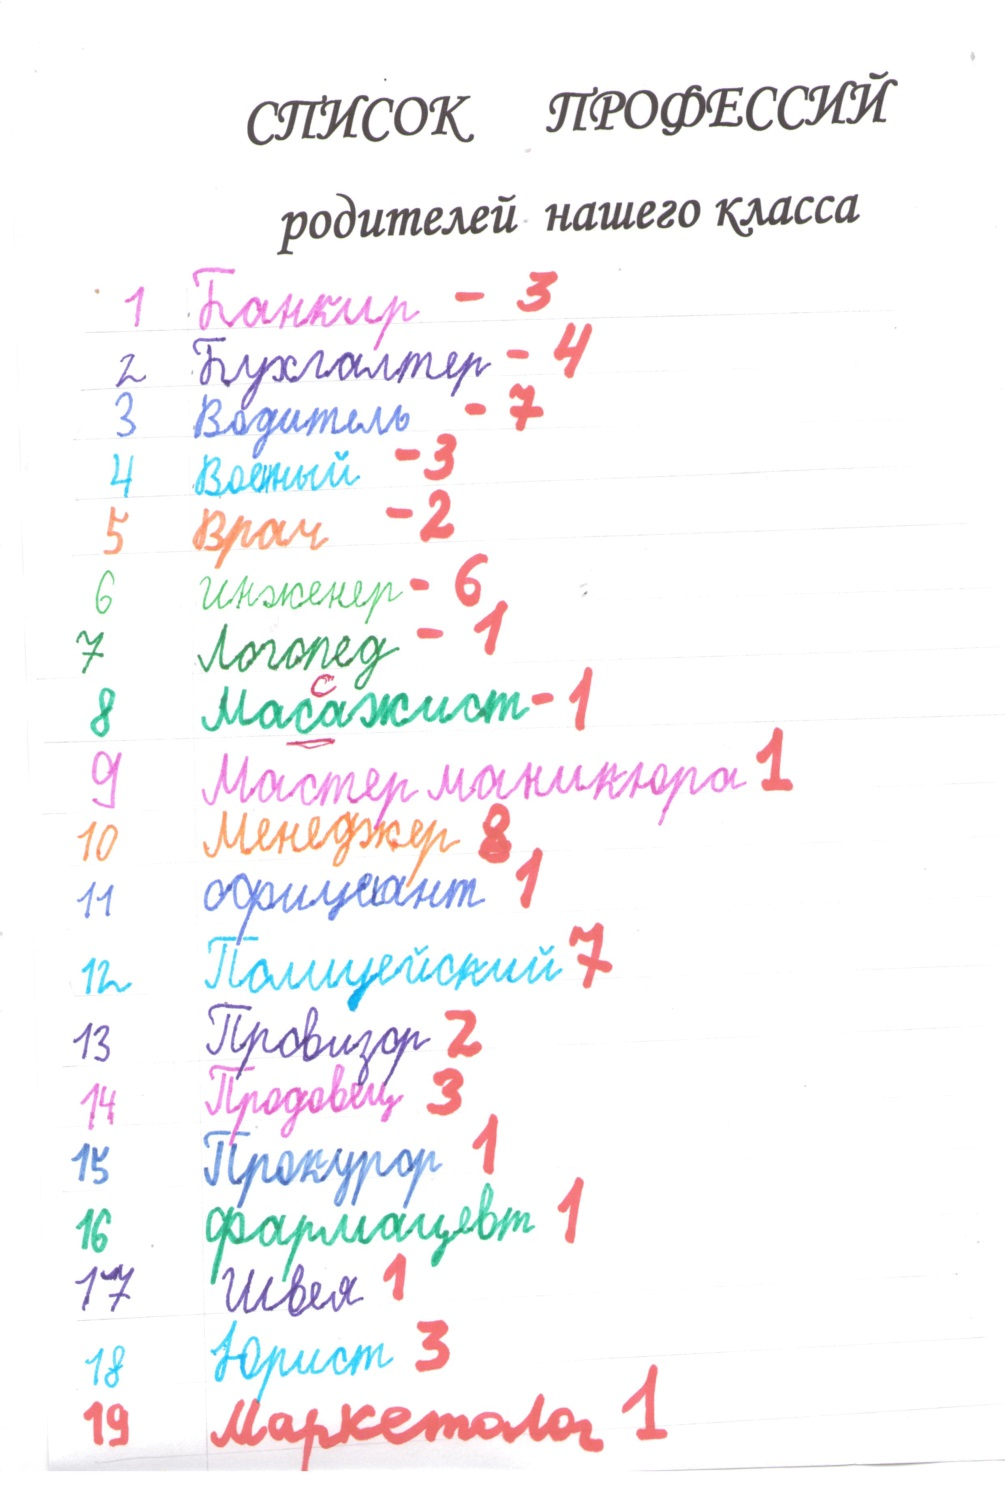 СПИСОК ПРОФЕССИЙ
родителей нашего класса
1 Банкир - 3
2 Бухгалтер - 4
3 Водитель - 7
4 Военый - 3
5 Врач - 2
6 инженер - 6
7 Логопед - 1
8 Массажист - 1
9 Мастер маникюра 1
10 Менеджер 8
11 официант 1
12 Полицейский 7
13 Провизор 2
14 Продовец 3
15 Прокурор 1
16 фармацевт 1
17 Швея 1
18 Юрист 3
19 Маркетолог 1